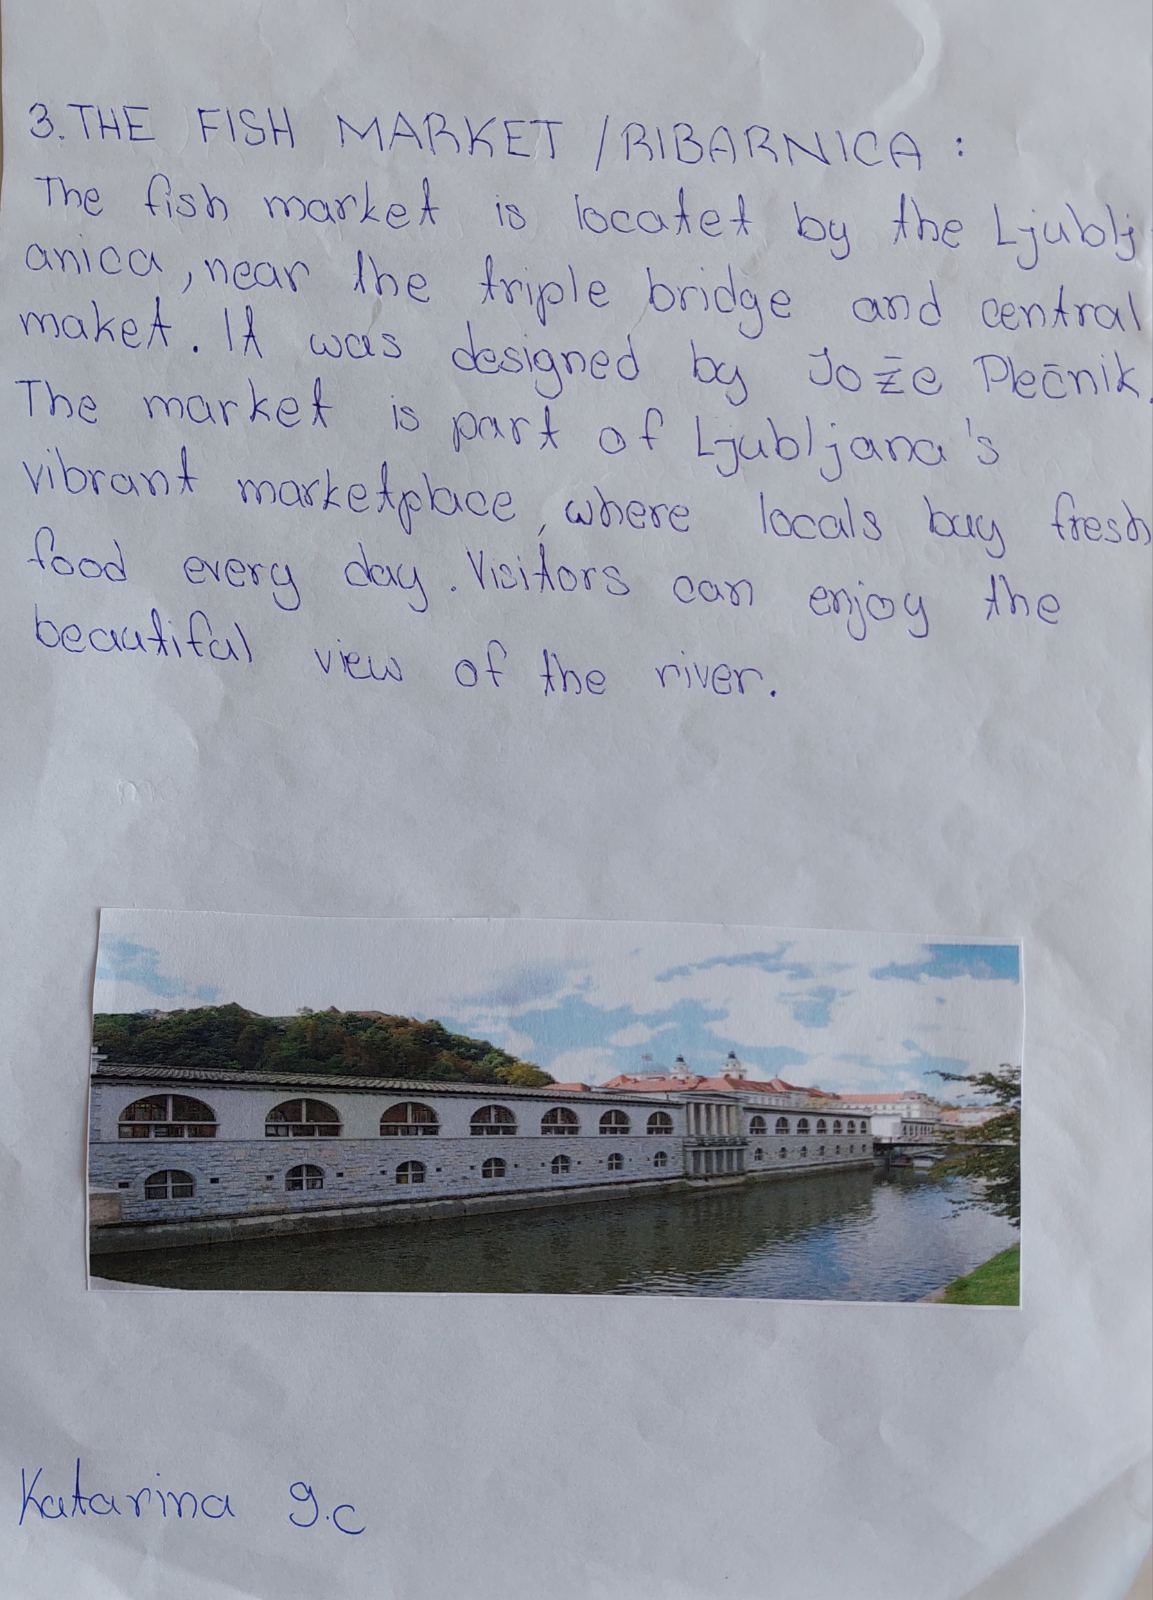 3. THE FISH MARKET / RIBARNICA :
The fish market is locatet by the Ljublj
anica, near the triple bridge and central
maket. It was designed by Jože Plečnik.
The market is part of Ljubljana's
vibrant marketplace, where locals buy fresh
food every day. Visitors can enjoy the
beautiful view of the river.
Katarina 9.c